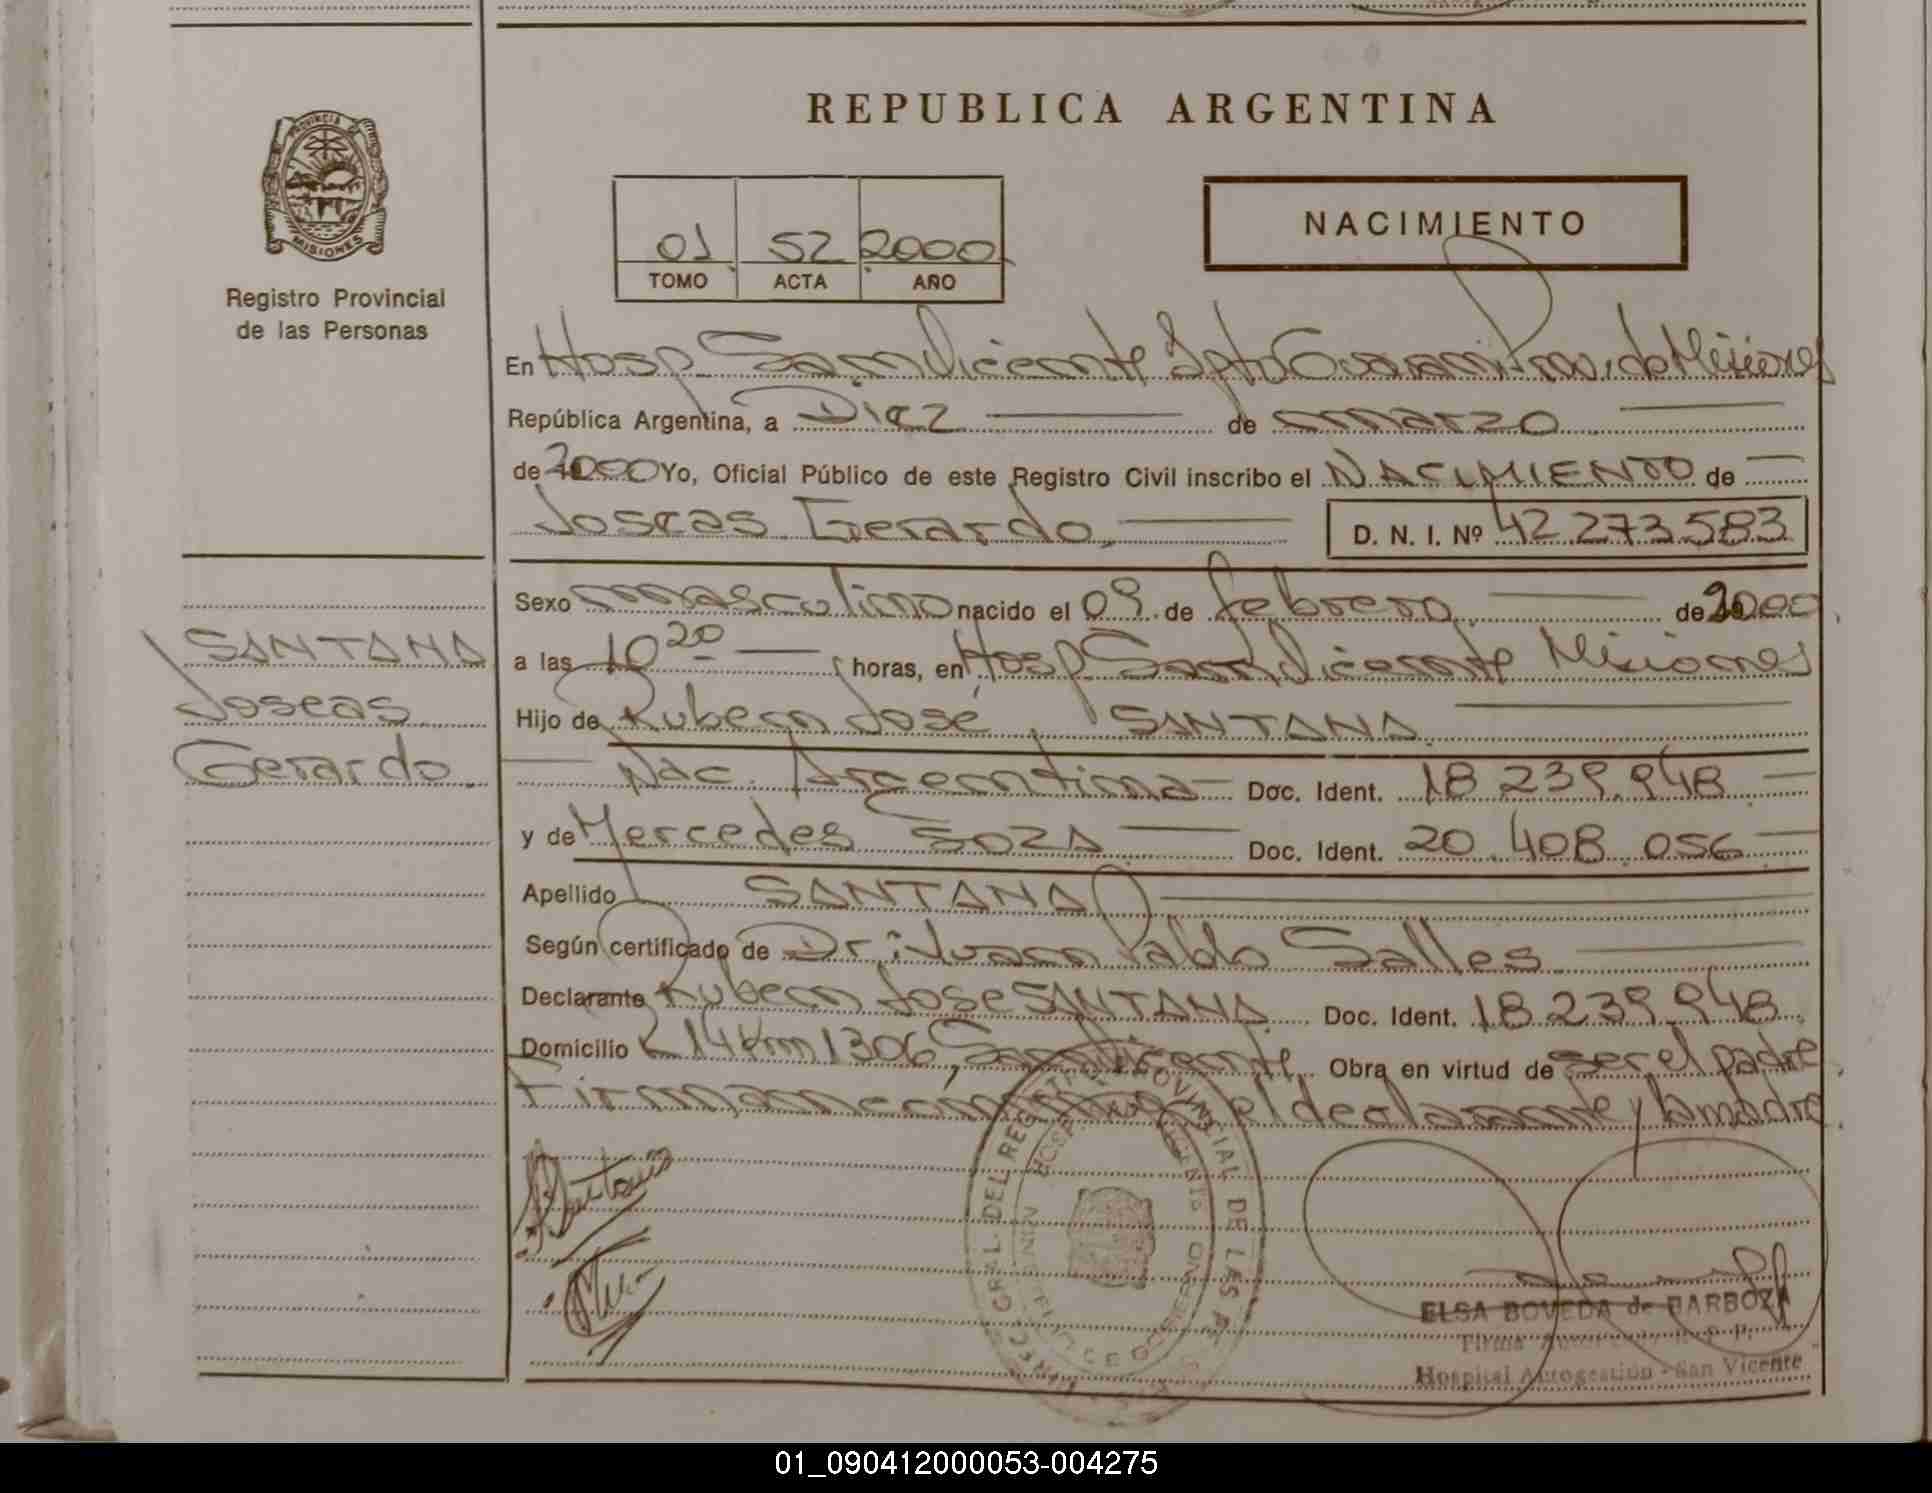 REPUBLICA ARGENTINA
PROVINCIA DE
MISIONES
Registro Provincial
de las Personas
01 52 2000
TOMO ACTA AÑO
NACIMIENTO
En Hosp. San Vicente Dpto Guarani Prov. de Misiones
República Argentina, a Diez de marzo
de 2000 Yo, Oficial Público de este Registro Civil inscribo el NACIMIENTO de
Joseas Gerardo, D. N. I. Nº 42 273 583
Sexo masculino nacido el 09 de febrero de 2000
a las 10 20 horas, en Hosp San Vicente Misiones
Hijo de Ruben José SANTANA
Nac. Argentina Doc. Ident. 18 239.948
y de Mercedes SOZA Doc. Ident. 20.408.056
Apellido SANTANA
Según certificado de Dr: Juan Pablo Salles
Declarante Ruben Jose SANTANA Doc. Ident. 18 239.948
Domicilio L 14 Km 1306, San Vicente Obra en virtud de ser el padre
Firman el declarante y la madre.
SANTANA
Joseas
Gerardo
DEL REGISTRO PROVINCIAL DE LAS
ELSA BOVEDA de BARBOZA
Firma
Hospital Autogestión - San Vicente
01_090412000053-004275